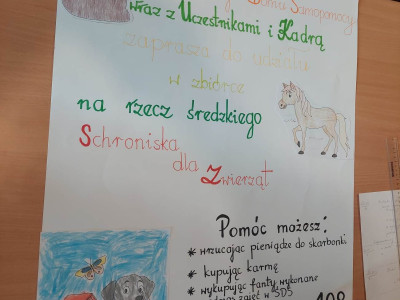 Samopomocy
wraz z Uczestnikami i Kadrą
zaprasza do udziału
w zbiórce
na rzecz średzkiego
Schroniska
dla
Zwierząt
Pomóc możesz:
* wrzucając pieniądze do skarbonki
* kupując karmę
* wykupując fanty wykonane
zajęć w ŚDS
108